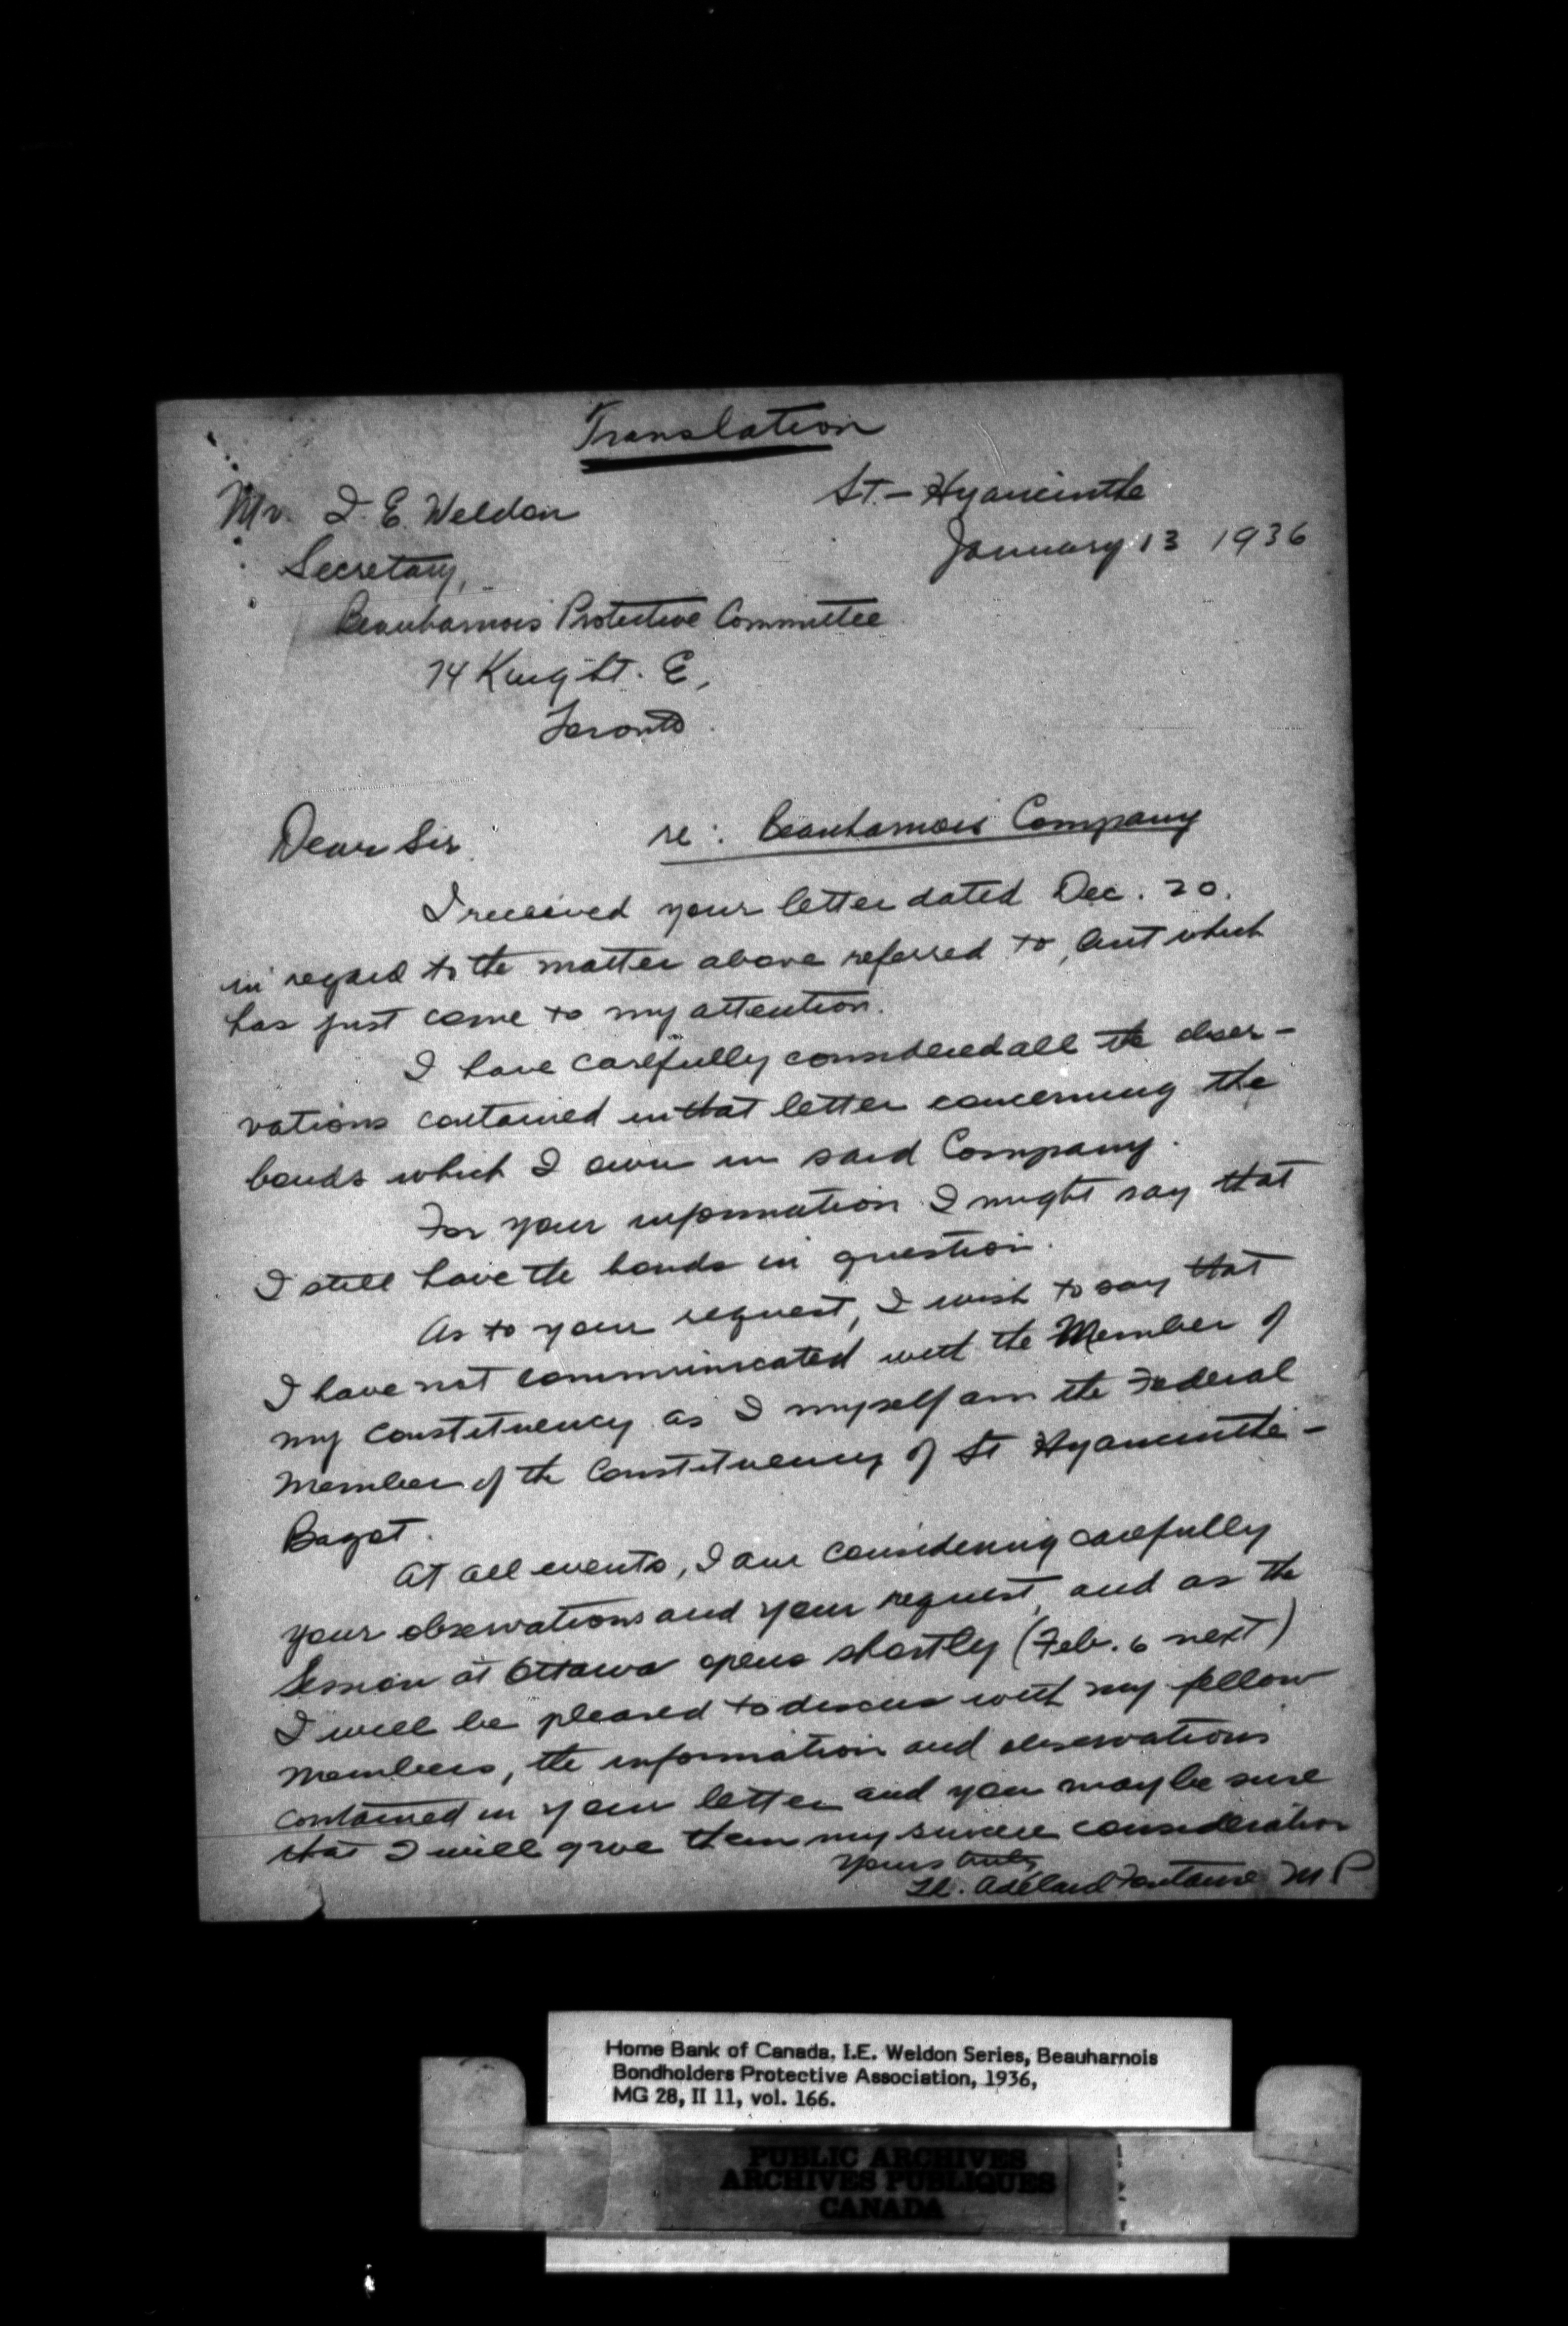 Translation
St.- Hyacinthe
January 13 1936
Mr. I. E. Weldon
Secretary,
Beauharnois Protective Committee
74 King St. E,
Toronto.
Dear Sir.
re: Beauharnois Company
I received your letter dated Dec. 20.
in regard to the matter above referred to, but which
has just come to my attention.
I have carefully considered all the obser-
vations contained in that letter concerning the
bonds which I own in said Company.
For your information I might say that
I still have the bonds in question.
As to your request, I wish to say that
I have not communicated with the Member of
my constituency as I myself am the Federal
Member of the Constituency of St Hyacinthe-
Bagot.
At all events, I am considering carefully
your observations and your request, and as the
Session at Ottawa opens shortly (Feb. 6 next)
I will be pleased to discuss with my fellow
members, the information and observations
contained in your letter and you may be sure
that I will give them my sincere consideration
Yours truly
Adélard Fontaine M P
Home Bank of Canada, I.E. Weldon Series, Beauharnois
Bondholders Protective Association, 1936,
MG 28, II 11, vol. 166.
PUBLIC ARCHIVES
ARCHIVES PUBLIQUES
CANADA